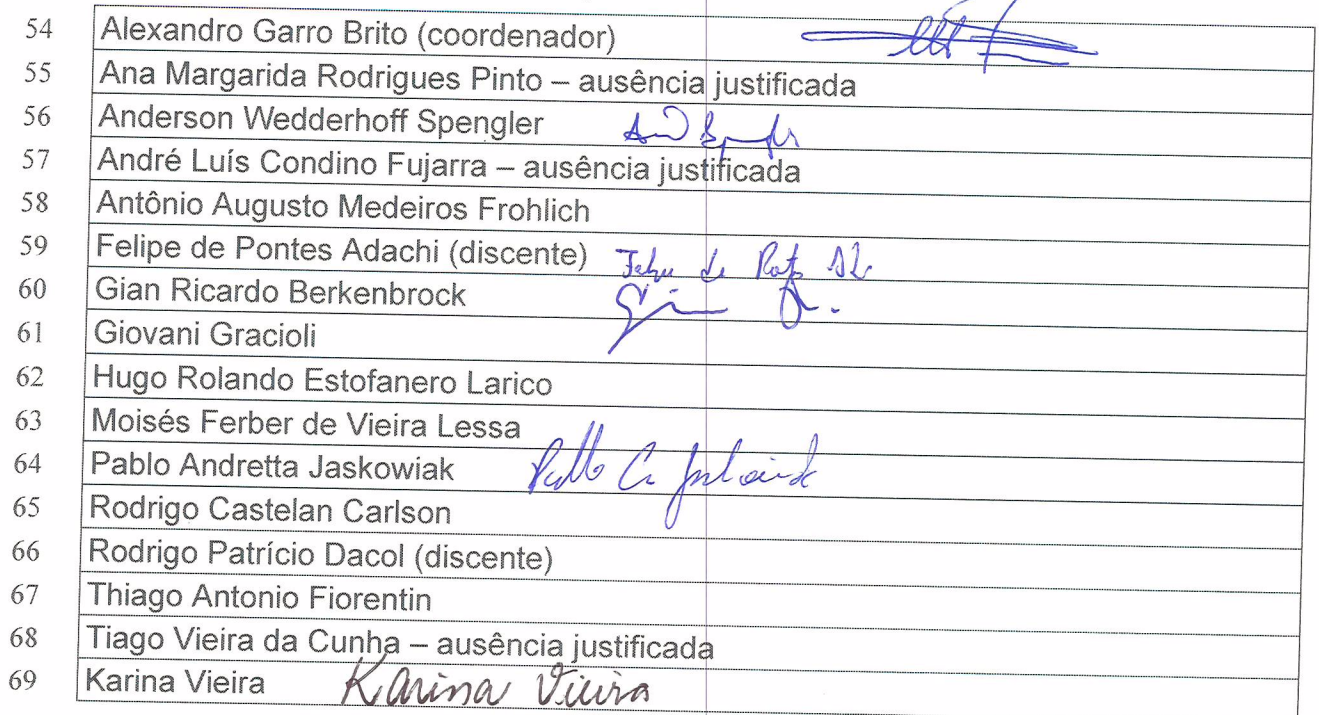 54 Alexandro Garro Brito (coordenador)
55 Ana Margarida Rodrigues Pinto – ausência justificada
56 Anderson Wedderhoff Spengler
57 André Luís Condino Fujarra – ausência justificada
58 Antônio Augusto Medeiros Frohlich
59 Felipe de Pontes Adachi (discente)
60 Gian Ricardo Berkenbrock
61 Giovani Gracioli
62 Hugo Rolando Estofanero Larico
63 Moisés Ferber de Vieira Lessa
64 Pablo Andretta Jaskowiak
65 Rodrigo Castelan Carlson
66 Rodrigo Patrício Dacol (discente)
67 Thiago Antonio Fiorentin
68 Tiago Vieira da Cunha – ausência justificada
69 Karina Vieira Karina Vieira